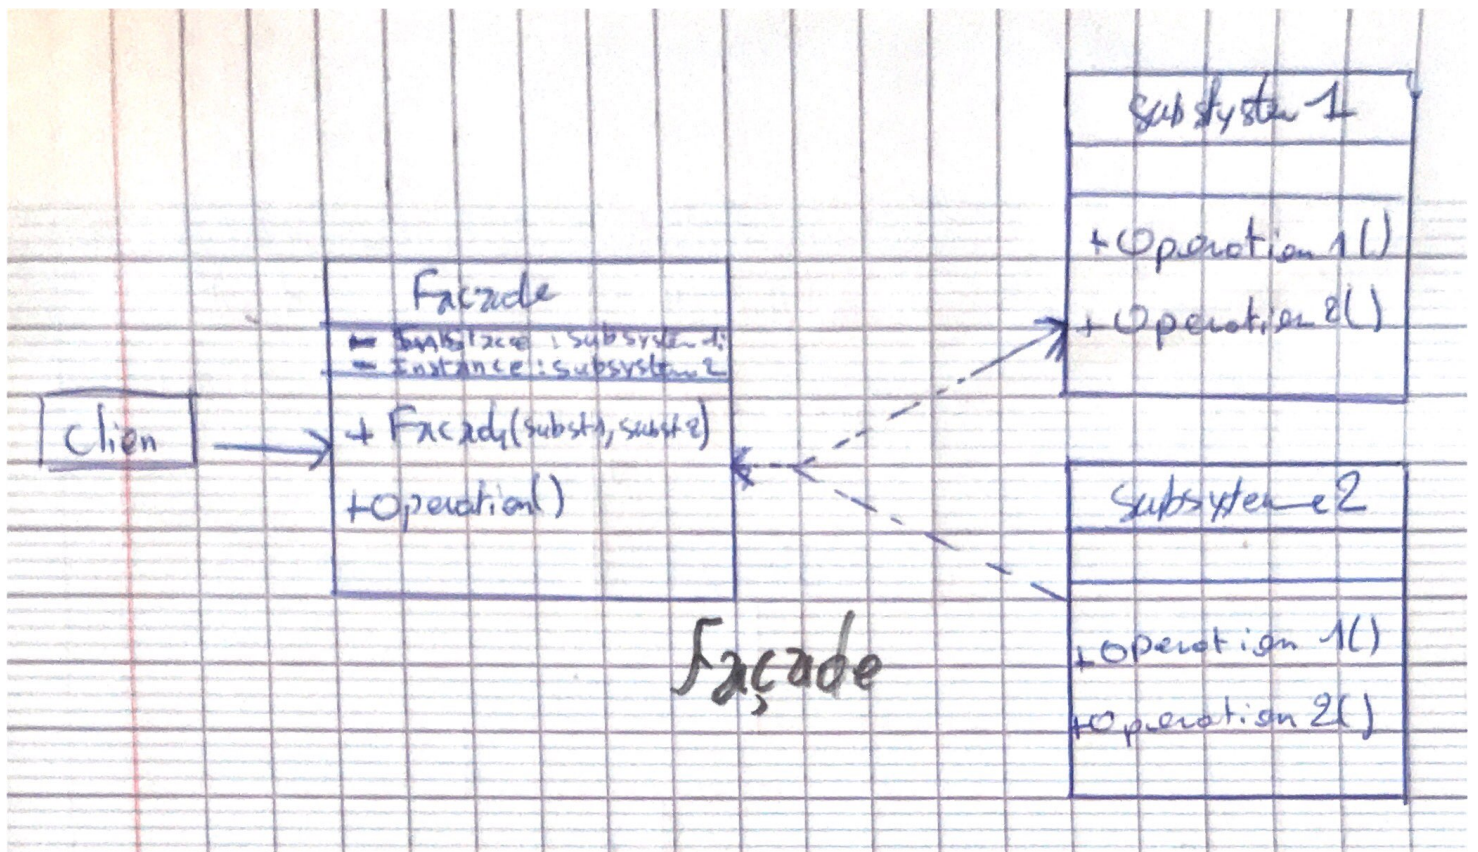 Clien
Facade
- Instance : Subsystem 1;
- Instance : Subsystem 2
+ Facade(subst1, subst2)
+Operation()
Subsystem 1
+Operation 1()
+Operation 2()
Subsysteme 2
+Operation 1()
+Operation 2()
Façade